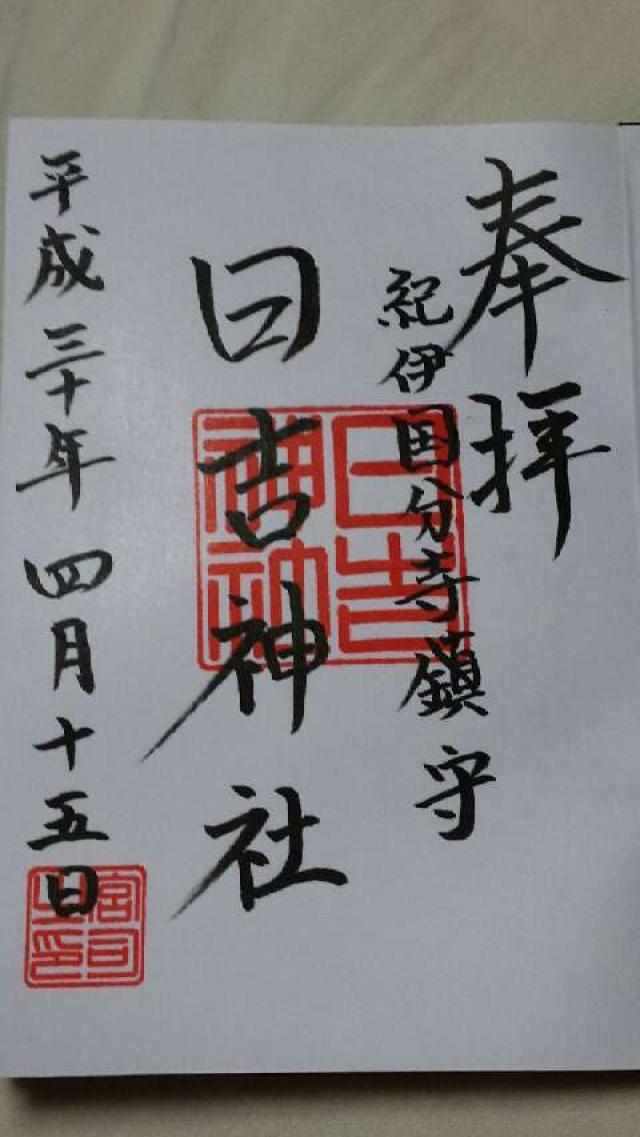 奉拝
紀伊国分寺鎮守
日吉神社
日吉神社
平成三十年四月十五日
宮司之印